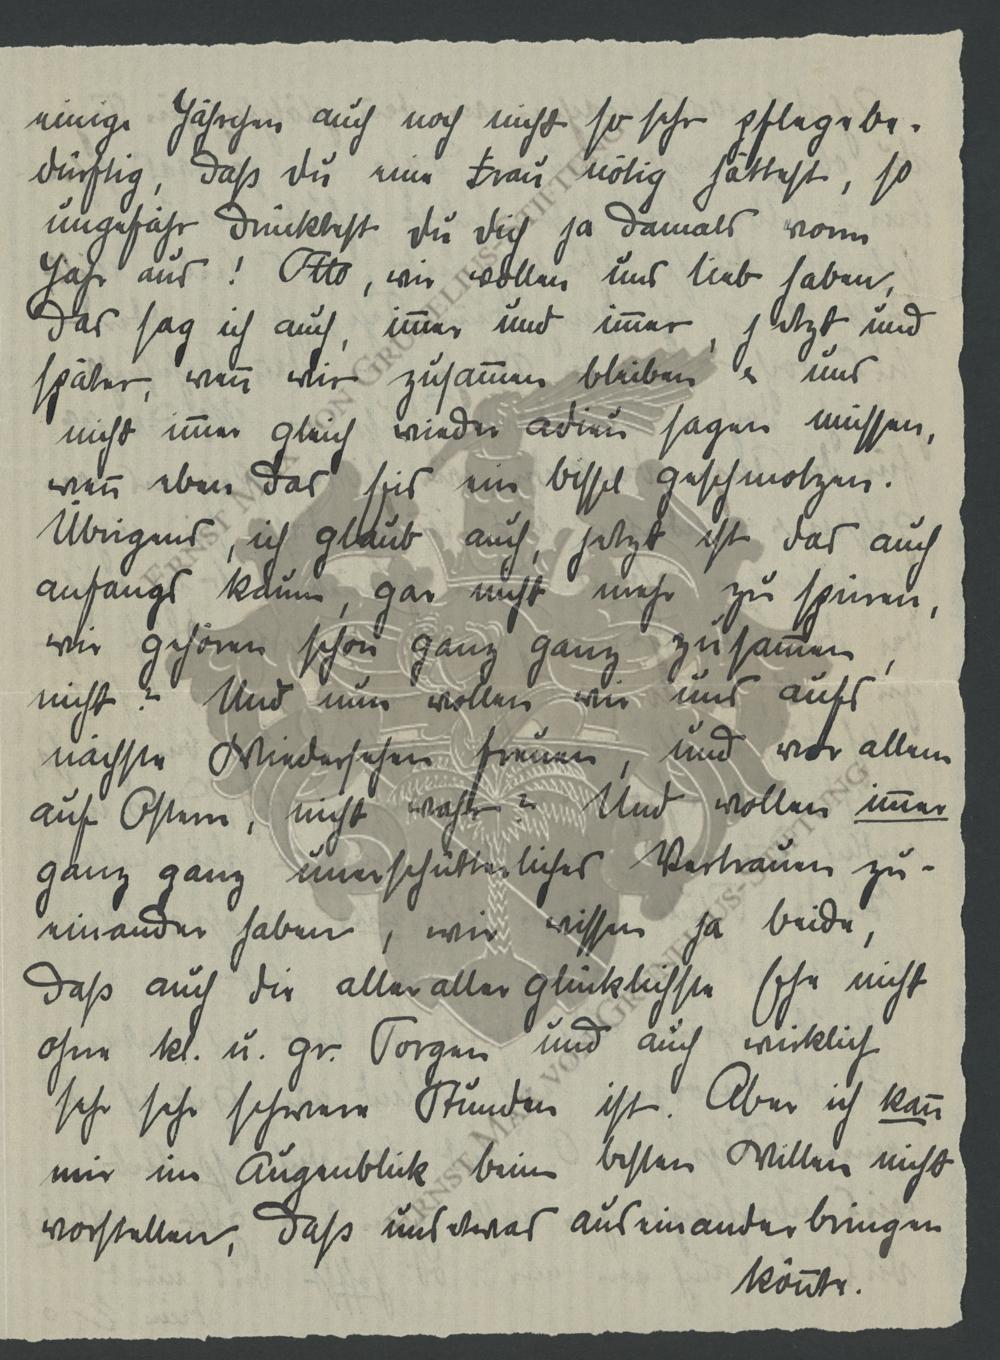 einige Jährchen auch noch nicht so sehr pflegebe-
dürftig, daß du eine Frau nötig hättest, so
ungefähr drücktest du dich ja damals vorm
Jahr aus! Otto, wir wollen uns lieb haben,
das sag ich auch, im̄er und im̄er, jetzt und
später, wen̄ wir zusam̄en bleiben u uns
nicht im̄er gleich wieder adieu sagen müssen,
wen̄ eben das Eis ein bissel geschmolzen.
Übrigens, ich glaub auch, jetzt ist das auch
anfangs kaum, gar nicht mehr zu spüren,
wir gehören schon ganz ganz zusam̄en,
nicht? Und nun wollen wir uns aufs
nächste Wiedersehen freuen, und vor allem
auf Ostern, nicht wahr? Und wollen im̄er
ganz ganz unerschütterliches Vertrauen zu-
einander haben, wir wissen ja beide,
daß auch die allerallerglücklichste Ehe nicht
ohne kl. u. gr. Sorgen und auch wirklich
sehr sehr schwere Stunden ist. Aber ich kan̄
mir im Augenblick beim besten Willen nicht
vorstellen, daß uns etwas auseinanderbringen
kön̄te.
ERNST MAX VON GRUNELIUS-STIFTUNG
ERNST MAX VON GRUNELIUS-STIFTUNG